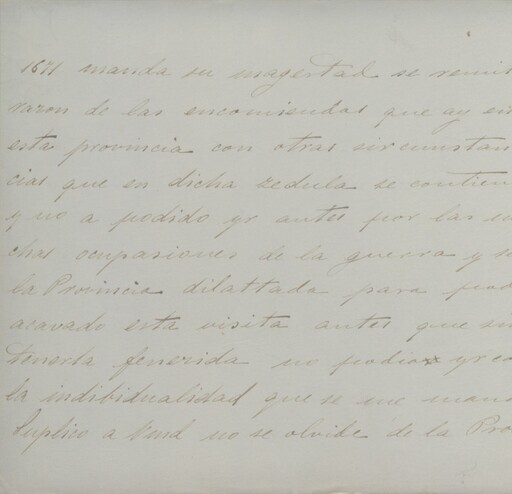 1671 manda su magestad se remit
razon de las encomiendas que ay en
esta provincia con otras sircunstan
cias que en dicha zedula se contien
y no a podido yr antes por las m
chas ocupasiones de la guerra y s
la Provincia dilattada para pod
acavado esta visita antes que sin
tenerla fenesida no podia yr co
la indibidualidad que se me mand
Suplico a Vmd no se olvide de la Pro